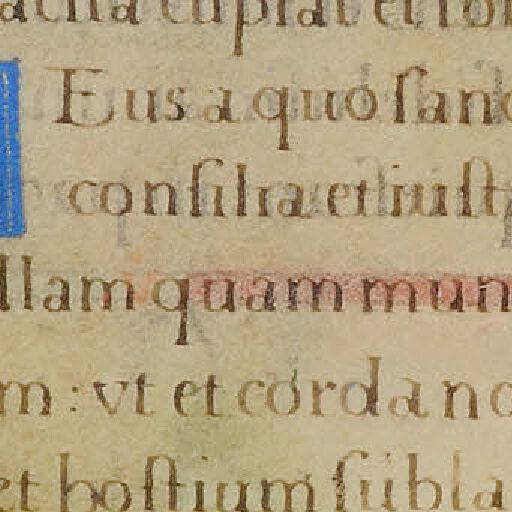 Eus a quo sanc
consilia et iust
llam quam mun
m : vt et corda no
et hostium subla